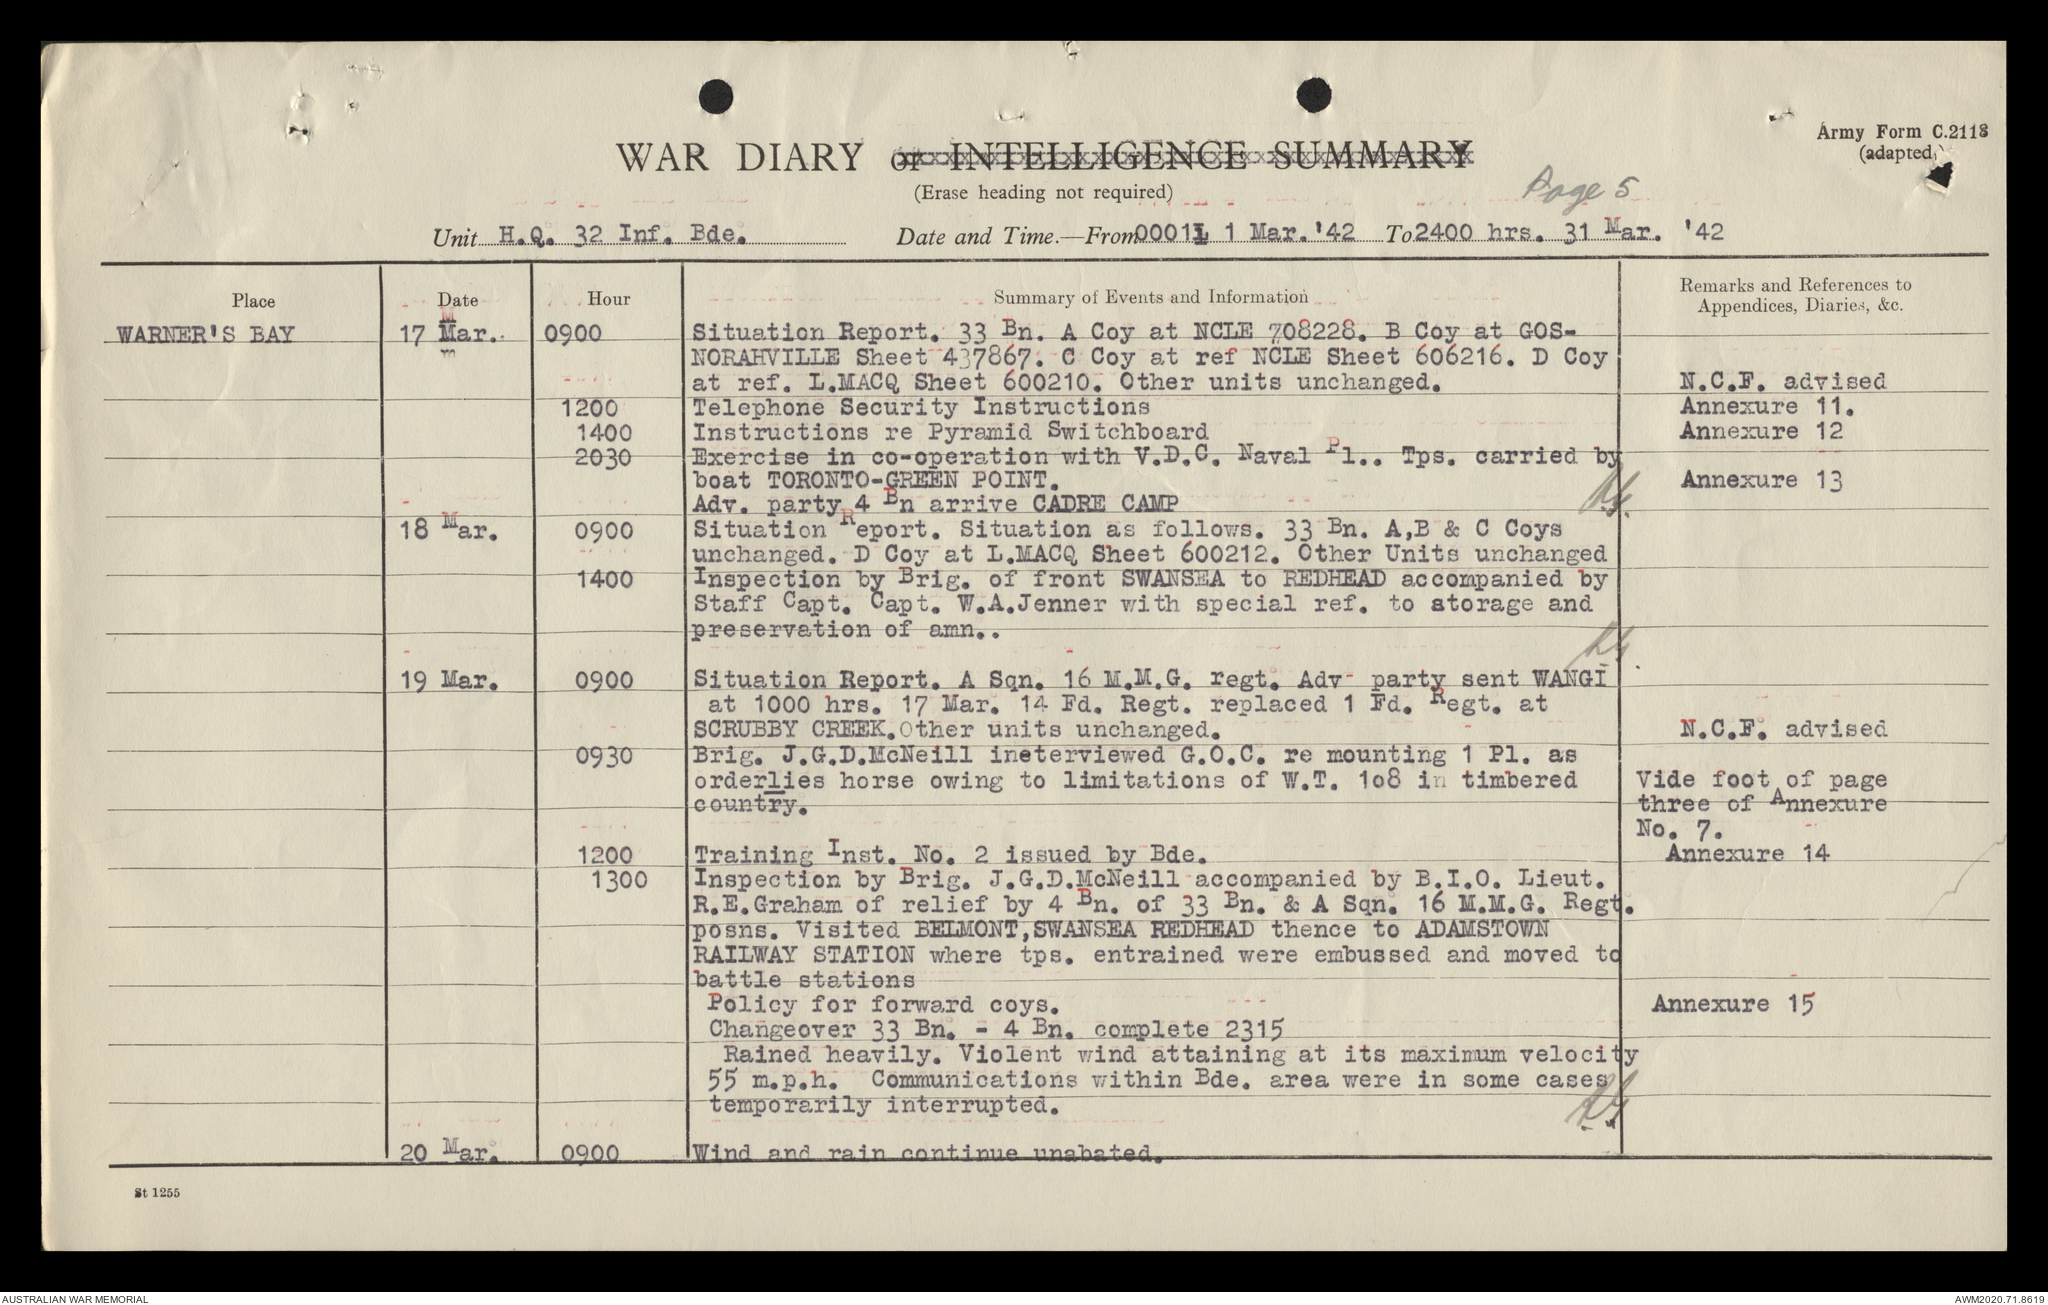 Army Form C.2118
(adapted)
WAR DIARY or INTELLIGENCE SUMMARY
(Erase heading not required)
Page 5
Unit H.Q. 32 Inf. Bde. Date and Time.—From 0001L 1 Mar.'42 To 2400 hrs. 31 Mar. '42
Place Date Hour Summary of Events and Information Remarks and References to
Appendices, Diaries, &c.
WARNER'S BAY 17 Mar. 0900 Situation Report. 33 Bn. A Coy at NCLE 708228. B Coy at GOS-
NORAHVILLE Sheet 437867. C Coy at ref NCLE Sheet 606216. D Coy
at ref. L.MACQ Sheet 600210. Other units unchanged. N.C.F. advised
1200 Telephone Security Instructions Annexure 11.
1400 Instructions re Pyramid Switchboard Annexure 12
2030 Exercise in co-operation with V.D.C. Naval Pl.. Tps. carried by
boat TORONTO-GREEN POINT. Annexure 13
Adv. party 4 Bn arrive CADRE CAMP
18 Mar. 0900 Situation Report. Situation as follows. 33 Bn. A,B & C Coys
unchanged. D Coy at L.MACQ Sheet 600212. Other Units unchanged
1400 Inspection by Brig. of front SWANSEA to REDHEAD accompanied by
Staff Capt. Capt. W.A.Jenner with special ref. to storage and
preservation of amn..
19 Mar. 0900 Situation Report. A Sqn. 16 M.M.G. regt. Adv party sent WANGI
at 1000 hrs. 17 Mar. 14 Fd. Regt. replaced 1 Fd. Regt. at
SCRUBBY CREEK.Other units unchanged. N.C.F. advised
0930 Brig. J.G.D.McNeill ineterviewed G.O.C. re mounting 1 Pl. as
orderlies horse owing to limitations of W.T. 108 in timbered Vide foot of page
country. three of Annexure
No. 7.
1200 Training Inst. No. 2 issued by Bde. Annexure 14
1300 Inspection by Brig. J.G.D.McNeill accompanied by B.I.O. Lieut.
R.E.Graham of relief by 4 Bn. of 33 Bn. & A Sqn. 16 M.M.G. Regt.
posns. Visited BELMONT,SWANSEA REDHEAD thence to ADAMSTOWN
RAILWAY STATION where tps. entrained were embussed and moved to
battle stations
Policy for forward coys. Annexure 15
Changeover 33 Bn. - 4 Bn. complete 2315
Rained heavily. Violent wind attaining at its maximum velocity
55 m.p.h. Communications within Bde. area were in some cases
temporarily interrupted.
20 Mar. 0900 Wind and rain continue unabated.
St 1255
AUSTRALIAN WAR MEMORIAL AWM2020.71.8619